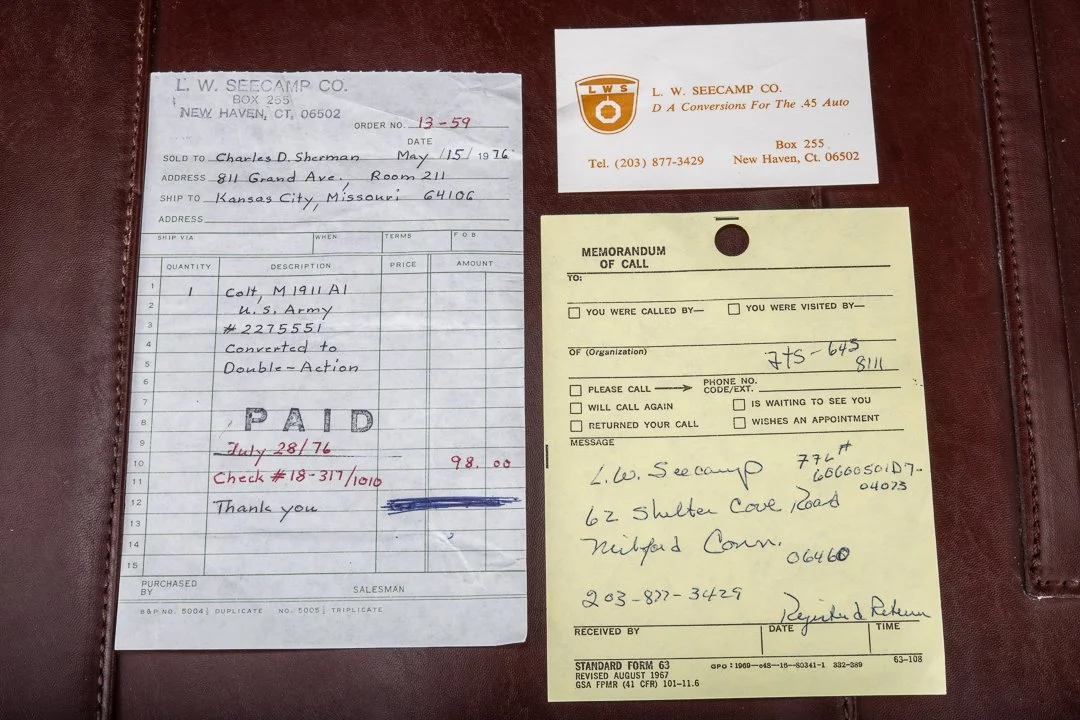 L. W. SEECAMP CO.
BOX 255
NEW HAVEN, CT, 06502
ORDER NO. 13-59
DATE
SOLD TO Charles D. Sherman May /15/ 1976
ADDRESS 811 Grand Ave, Room 211
SHIP TO Kansas City, Missouri 64106
ADDRESS
SHIP VIA WHEN TERMS F O B
QUANTITY DESCRIPTION PRICE AMOUNT
1 1 Colt, M 1911 A1
2 U.S. Army
3 # 2275551
4 Converted to
5 Double-Action
6
7
8 PAID
9 July 28/76
10 98. 00
11 Check #18-317/1010
12 Thank you
13
14
15
PURCHASED BY SALESMAN
B&P NO. 5004½ DUPLICATE NO. 5005½ TRIPLICATE
LWS
L. W. SEECAMP CO.
D A Conversions For The .45 Auto
Box 255
Tel. (203) 877-3429 New Haven, Ct. 06502
MEMORANDUM
OF CALL
TO:
YOU WERE CALLED BY— YOU WERE VISITED BY—
OF (Organization)
FTS-645
8111
PLEASE CALL PHONE NO.
CODE/EXT.
WILL CALL AGAIN IS WAITING TO SEE YOU
RETURNED YOUR CALL WISHES AN APPOINTMENT
MESSAGE
L.W. Seecamp
04073
62 Shelter Cove Road
Milford Conn.
06460
203-877-3429
Registered Return
RECEIVED BY DATE TIME
STANDARD FORM 63 GPO : 1969—c48—16—80341-1 332-389 63-108
REVISED AUGUST 1967
GSA FPMR (41 CFR) 101-11.6